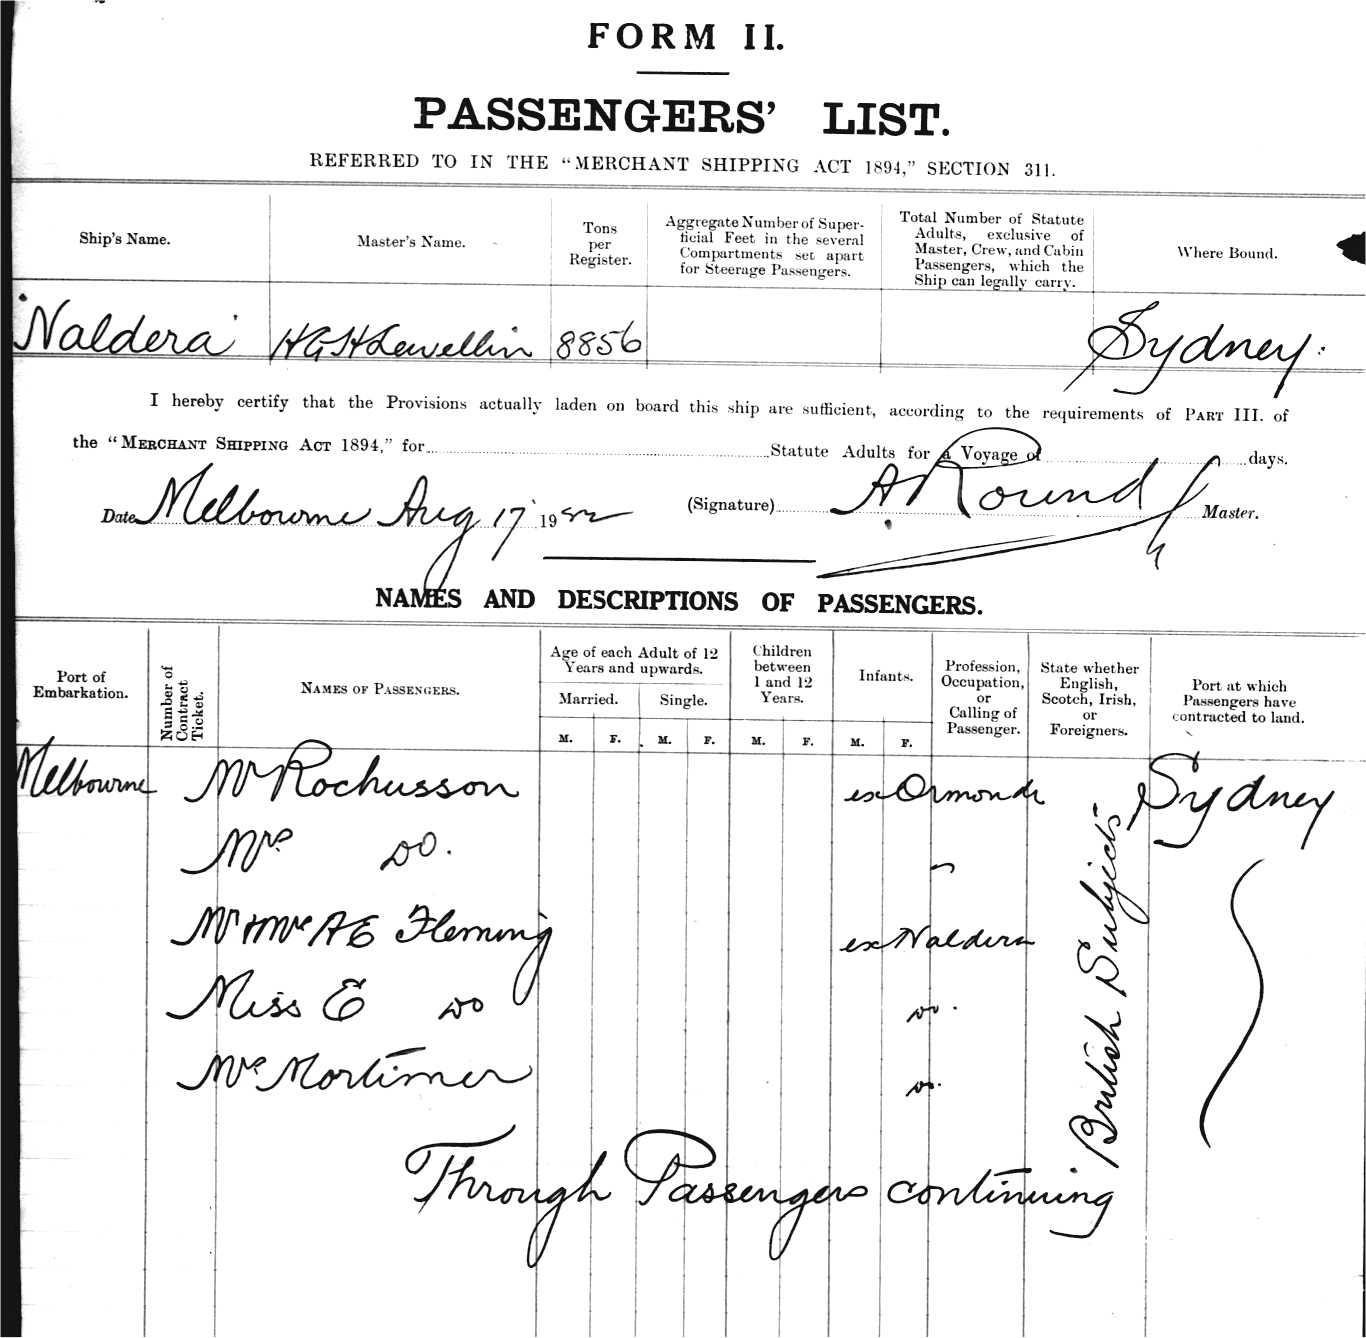 FORM II.
PASSENGERS' LIST.
REFERRED TO IN THE "MERCHANT SHIPPING ACT 1894," SECTION 311.
Ship's Name.
Master's Name.
Tons
per
Register.
Aggregate Number of Super-
ficial Feet in the several
Compartments set apart
for Steerage Passengers.
Total Number of Statute
Adults, exclusive of
Master, Crew, and Cabin
Passengers, which the
Ship can legally carry.
Where Bound.
'Naldera' H G H Lewellin 8856 Sydney.
I hereby certify that the Provisions actually laden on board this ship are sufficient, according to the requirements of PART III. of
the "MERCHANT SHIPPING ACT 1894," for Statute Adults for a Voyage of days.
Date Melbourne Aug 17 1922 (Signature) A Round Master.
NAMES AND DESCRIPTIONS OF PASSENGERS.
Port of
Embarkation.
Number of
Contract
Ticket.
NAMES OF PASSENGERS.
Age of each Adult of 12
Years and upwards.
Married. Single.
Children
between
1 and 12
Years.
Infants.
Profession,
Occupation,
or
Calling of
Passenger.
State whether
English,
Scotch, Irish,
or
Foreigners.
Port at which
Passengers have
contracted to land.
M. F. M. F. M. F. M. F.
Melbourne Mr Rochusson ex Ormonde Sydney
Mrs Do. "
Mr & Mrs A E Fleming ex Naldera
Miss E Do Do.
Mrs Mortimer Do.
British Subjects
Through Passengers continuing